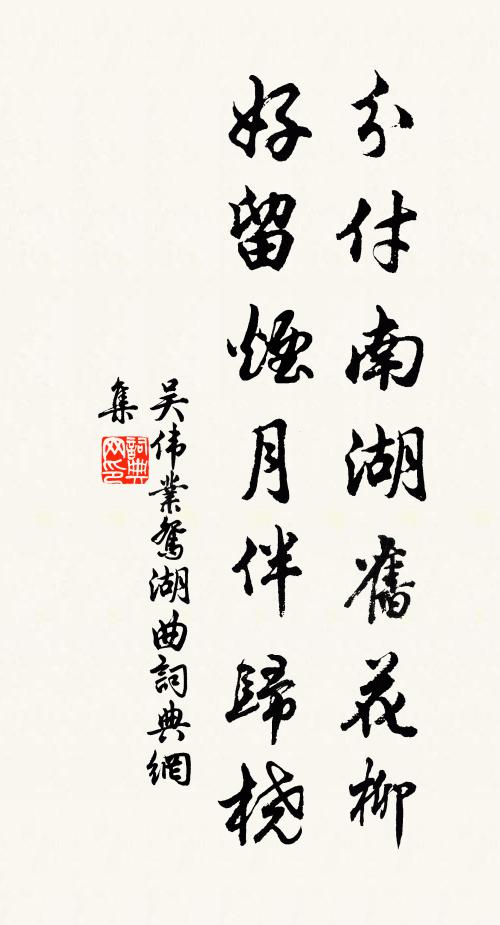 分付南湖舊花柳
好留煙月伴歸桡
吴伟業鴛湖曲詞典網
集
詞典
网印